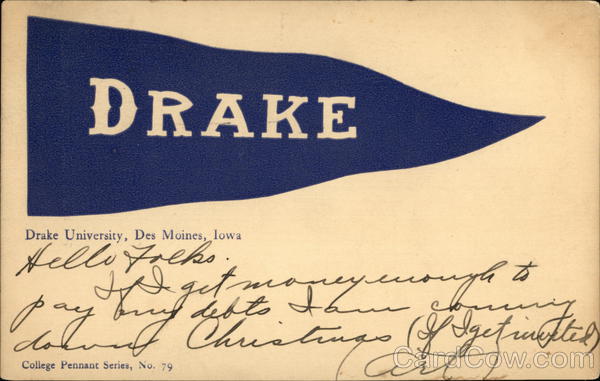 DRAKE
Drake University, Des Moines, Iowa
Hello Folks.
If I get money enough to
pay my debts I am coming
down Christmas (If I get invited)
College Pennant Series, No. 79
CardCow.com